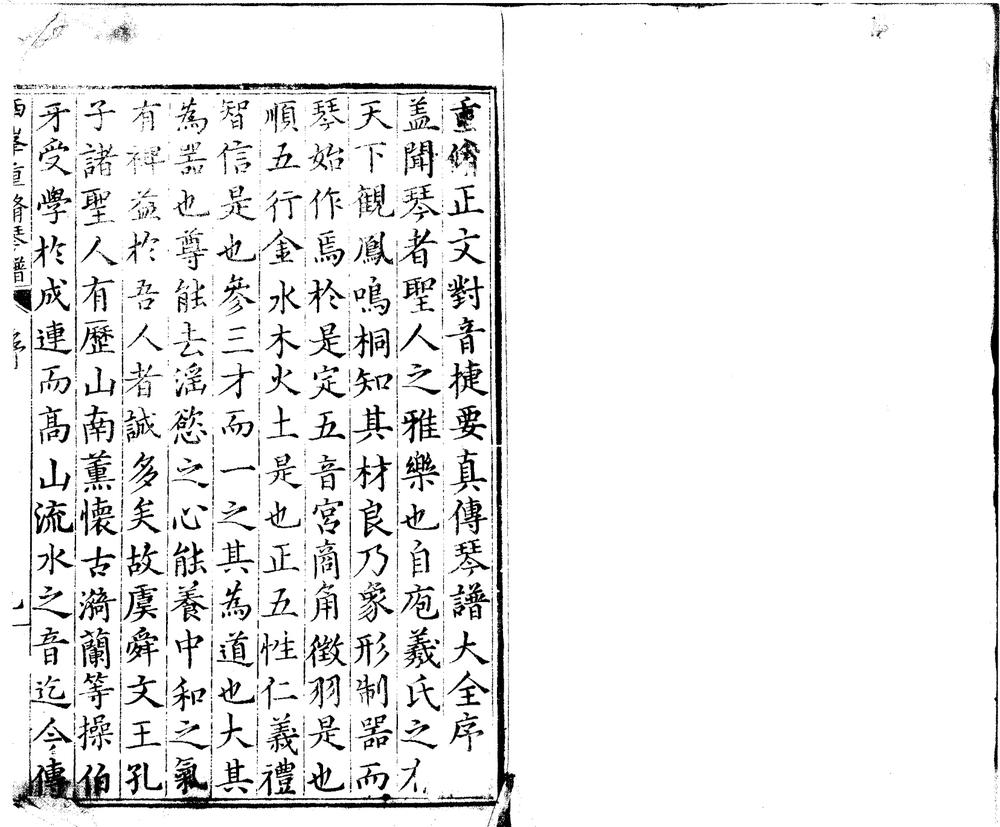 重修正文對音捷要真傳琴譜大全序
盖聞琴者聖人之雅樂也自庖羲氏之
天下觀鳳鳴桐知其材良乃象形制器而
琴始作焉於是定五音宮商角徵羽是也
順五行金水木火土是也正五性仁義禮
智信是也參三才而一之其為道也大其
為噐也尊能去滛慾之心能養中和之氣
有裨益於吾人者誠多矣故虞舜文王孔
子諸聖人有歷山南薰懷古漪蘭等操伯
牙受學於成連而髙山流水之音迄今傳
西峯重脩琴譜 序